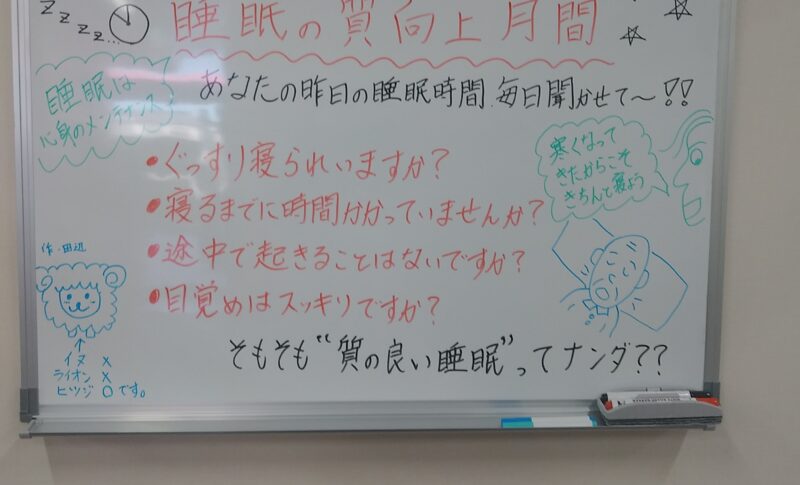 zzzz...
睡眠の質向上月間
睡眠は
心身のメンテナンス
あなたの昨日の睡眠時間、毎日聞かせて〜!!
・ぐっすり寝られいますか?
・寝るまでに時間かかっていませんか?
・途中で起きることはないですか?
・目覚めはスッキリですか?
寒くなって
きたからこそ
きちんと寝よう
作・田辺
イヌ ×
ライオン ×
ヒツジ ○です。
そもそも“質の良い睡眠”ってナンダ??